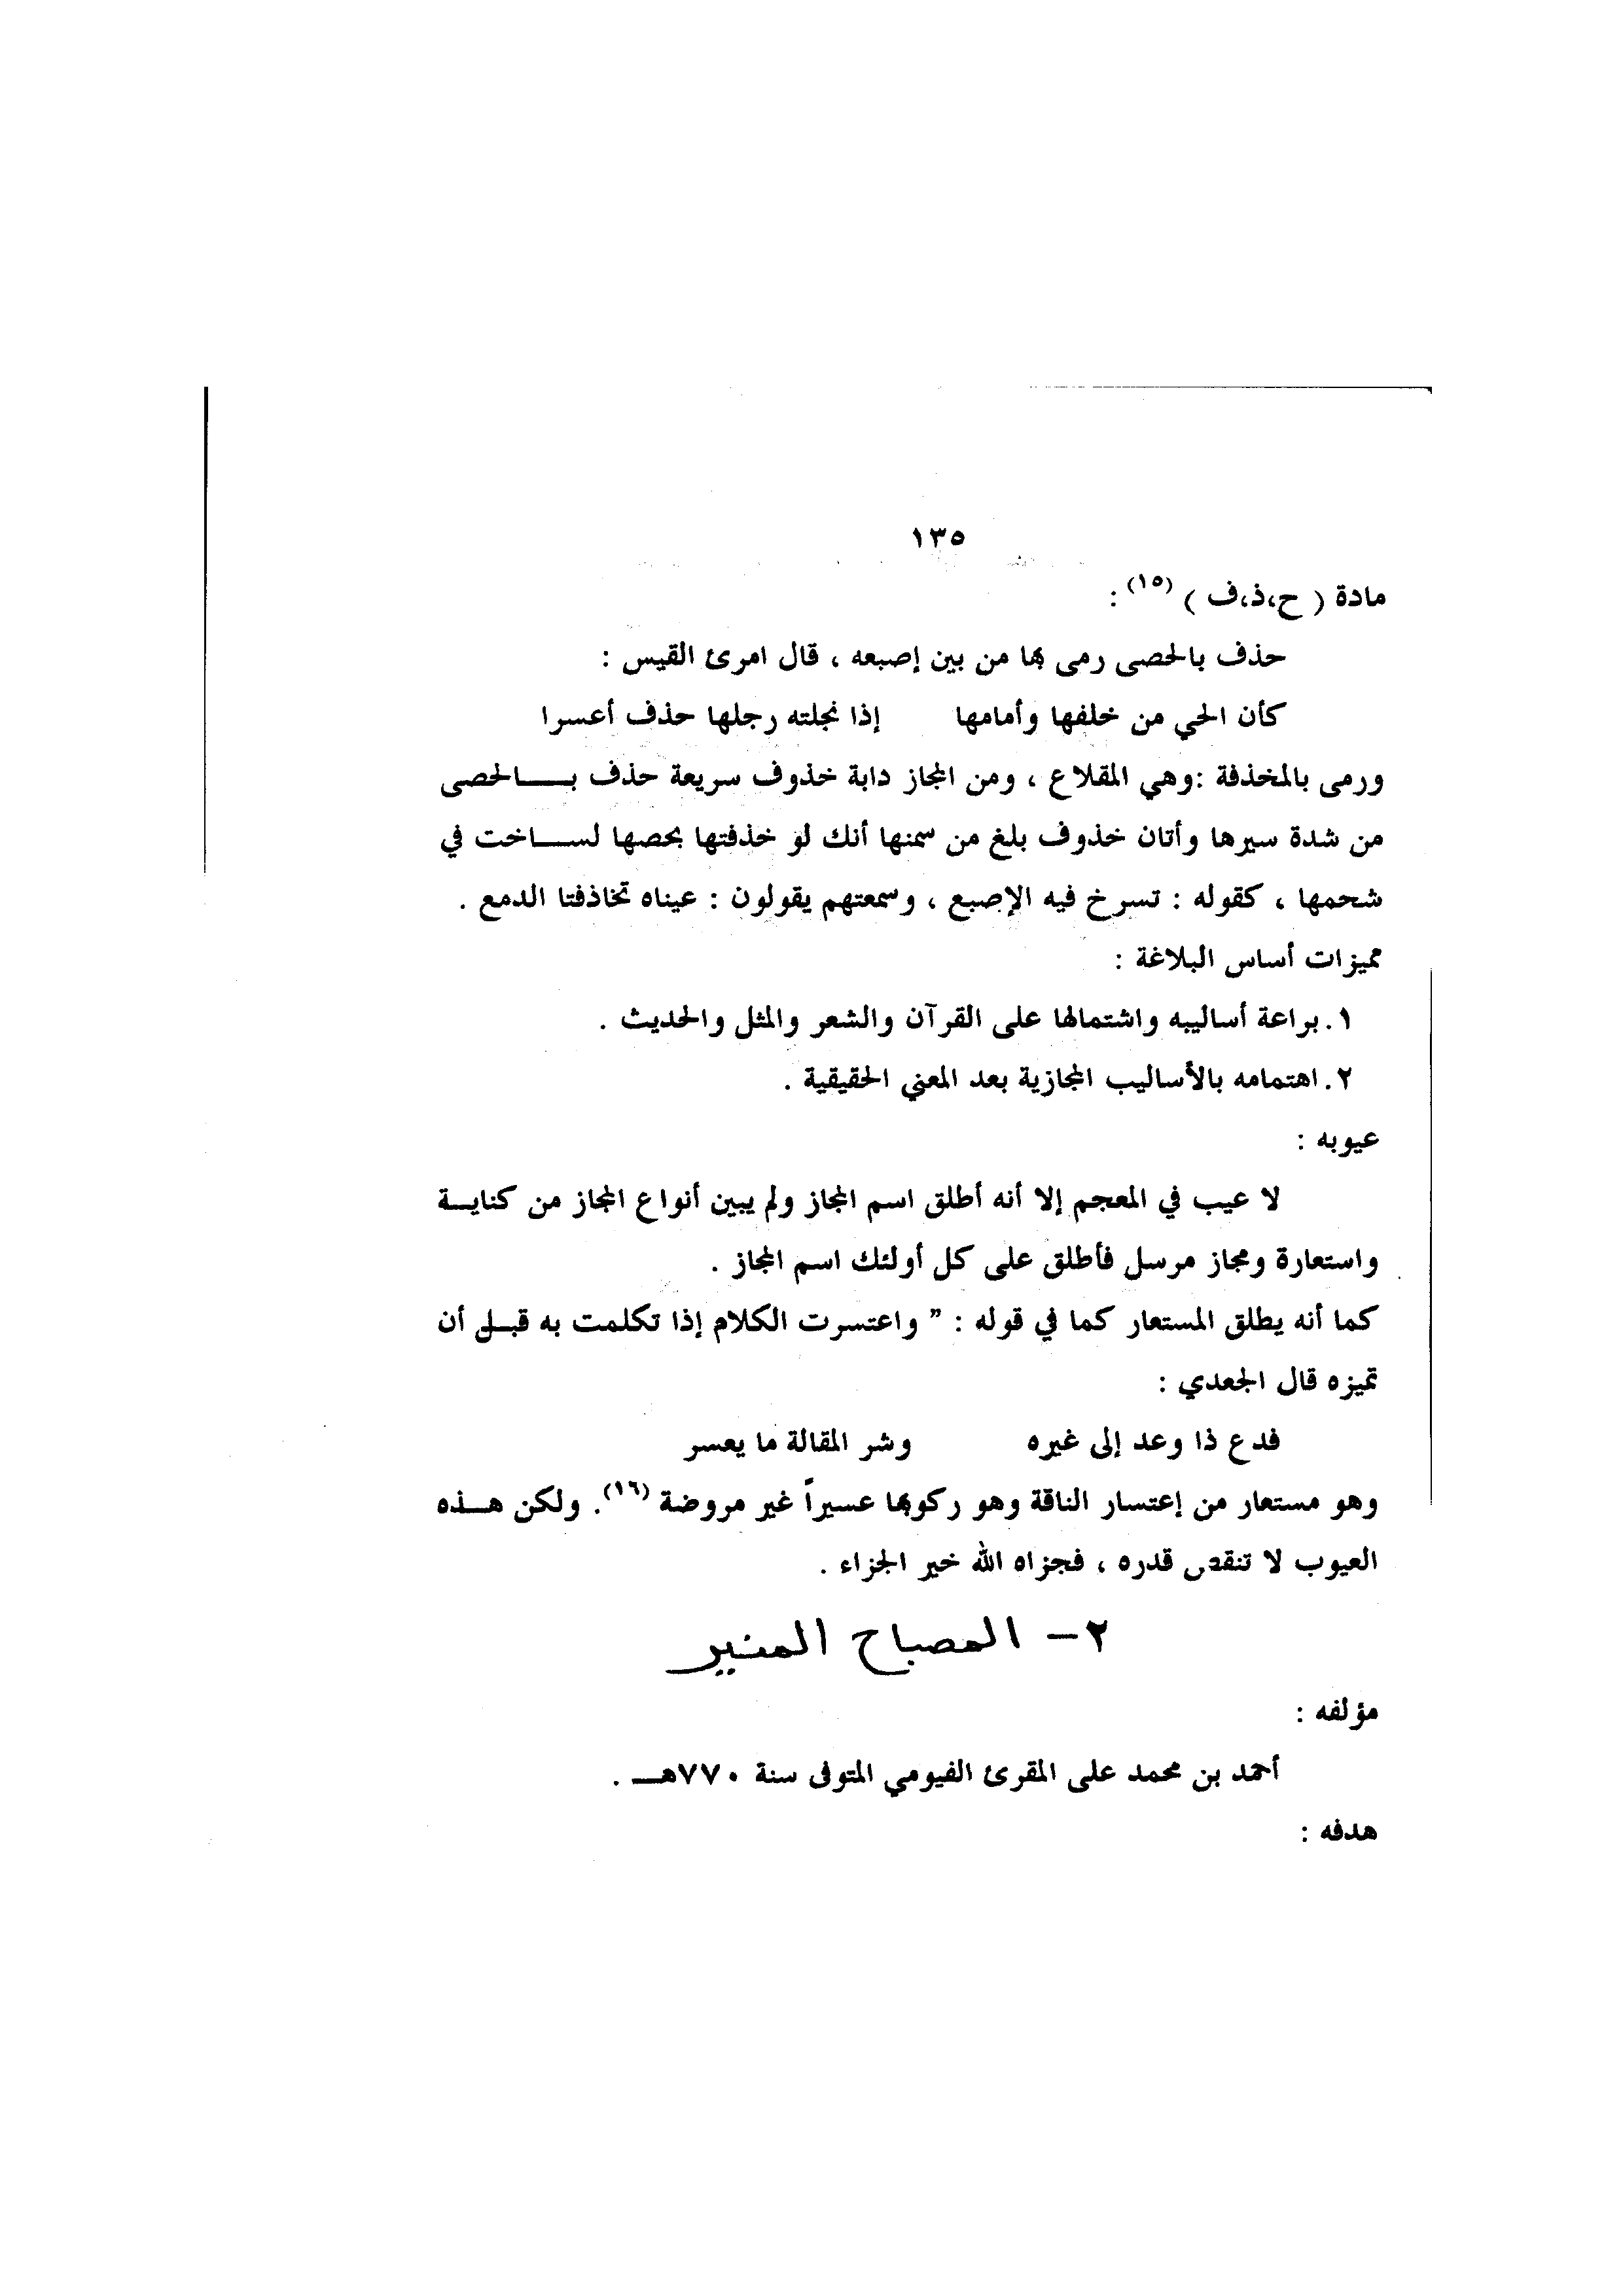 ١٣٥
مادة ( ح،ذ،ف ) (١٥) :
حذف بالحصى رمى بها من بين إصبعه ، قال امرئ القيس :
كأن الحي من خلفها وأمامها إذا نجلته رجلها حذف أعسرا
ورمى بالمخذفة :وهي المقلاع ، ومن المجاز دابة خذوف سريعة حذف بـــالحصى
من شدة سيرها وأتان خذوف بلغ من سمنها أنك لو خذفتها بحصها لســـاخت في
شحمها ، كقوله : تسرخ فيه الإصبع ، وسمعتهم يقولون : عيناه تخاذفتا الدمع .
مميزات أساس البلاغة :
١. براعة أساليبه واشتمالها على القرآن والشعر والمثل والحديث .
٢. اهتمامه بالأساليب المجازية بعد المعني الحقيقية .
عيوبه :
لا عيب في المعجم إلا أنه أطلق اسم المجاز ولم يبين أنواع المجاز من كنايــة
واستعارة ومجاز مرسل فأطلق على كل أولئك اسم المجاز .
كما أنه يطلق المستعار كما في قوله : ” واعتسرت الكلام إذا تكلمت به قبــل أن
تميزه قال الجعدي :
فدع ذا وعد إلى غيره وشر المقالة ما يعسر
وهو مستعار من إعتسار الناقة وهو ركوبها عسيراً غير مروضة (١٦). ولكن هــذه
العيوب لا تنقص قدره ، فجزاه الله خير الجزاء .
٢- المصباح المنير
مؤلفه :
أحمد بن محمد على المقرئ الفيومي المتوفى سنة ٧٧٠هــ .
هدفه :